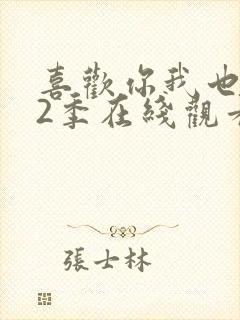 喜歡你我也
2季在綫觀
張士林